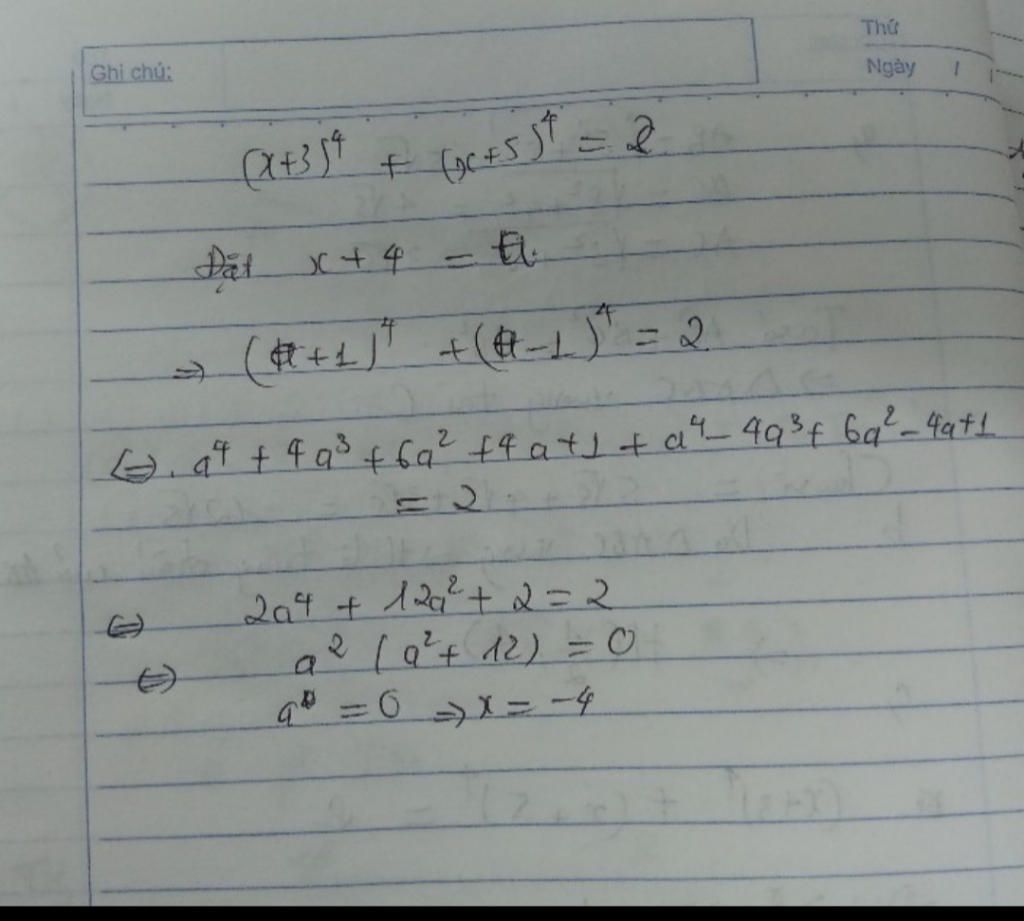 Thứ
Ghi chú:
Ngày / /
(x+3)⁴ + (x+5)⁴ = 2
Đặt x + 4 = a
⇒ (a+1)⁴ + (a-1)⁴ = 2
⇔ a⁴ + 4a³ + 6a² + 4a + 1 + a⁴ - 4a³ + 6a² - 4a + 1
= 2
⇔ 2a⁴ + 12a² + 2 = 2
⇔ a² (a² + 12) = 0
a = 0 ⇒ x = -4